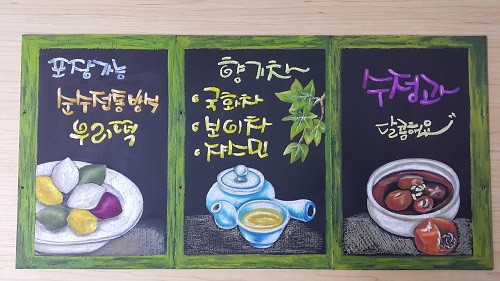 포장가능
순수전통방식
우리떡
향기차
·국화차
·보이차
·쟈스민
수정과
달콤해요